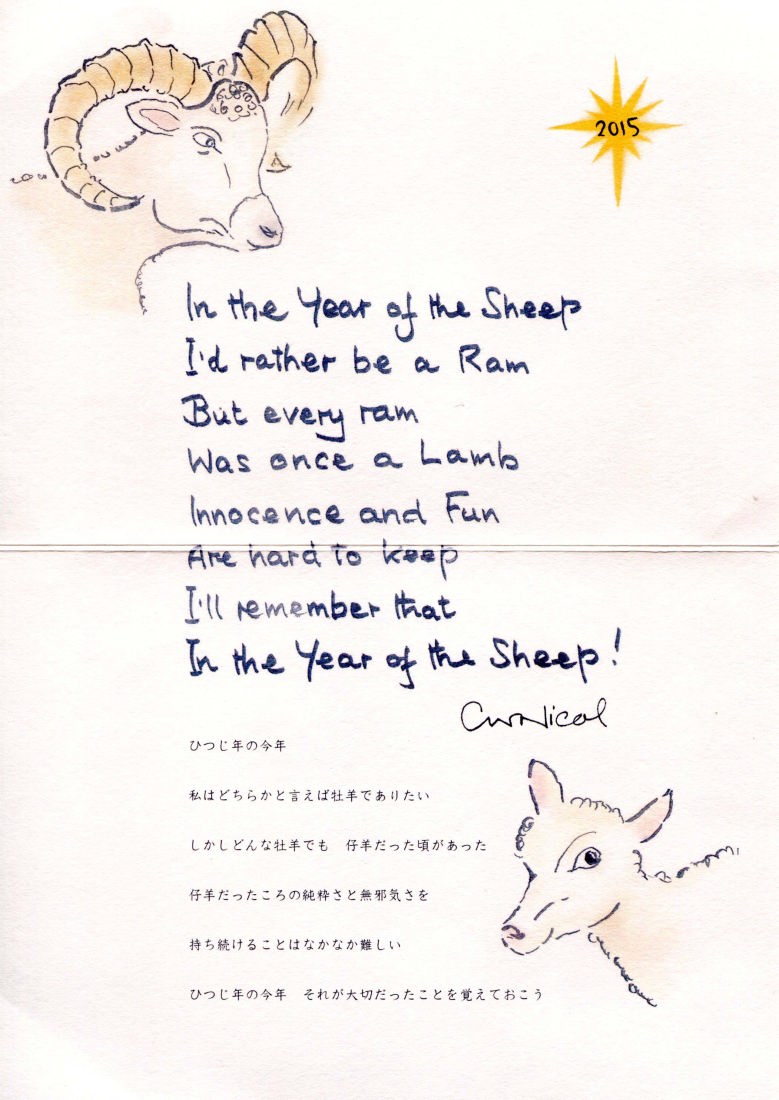 2015
In the Year of the Sheep
I'd rather be a Ram
But every ram
Was once a Lamb
Innocence and Fun
Are hard to keep
I'll remember that
In the Year of the Sheep!
CW Nicol
ひつじ年の今年
私はどちらかと言えば牡羊でありたい
しかしどんな牡羊でも 仔羊だった頃があった
仔羊だったころの純粋さと無邪気さを
持ち続けることはなかなか難しい
ひつじ年の今年 それが大切だったことを覚えておこう